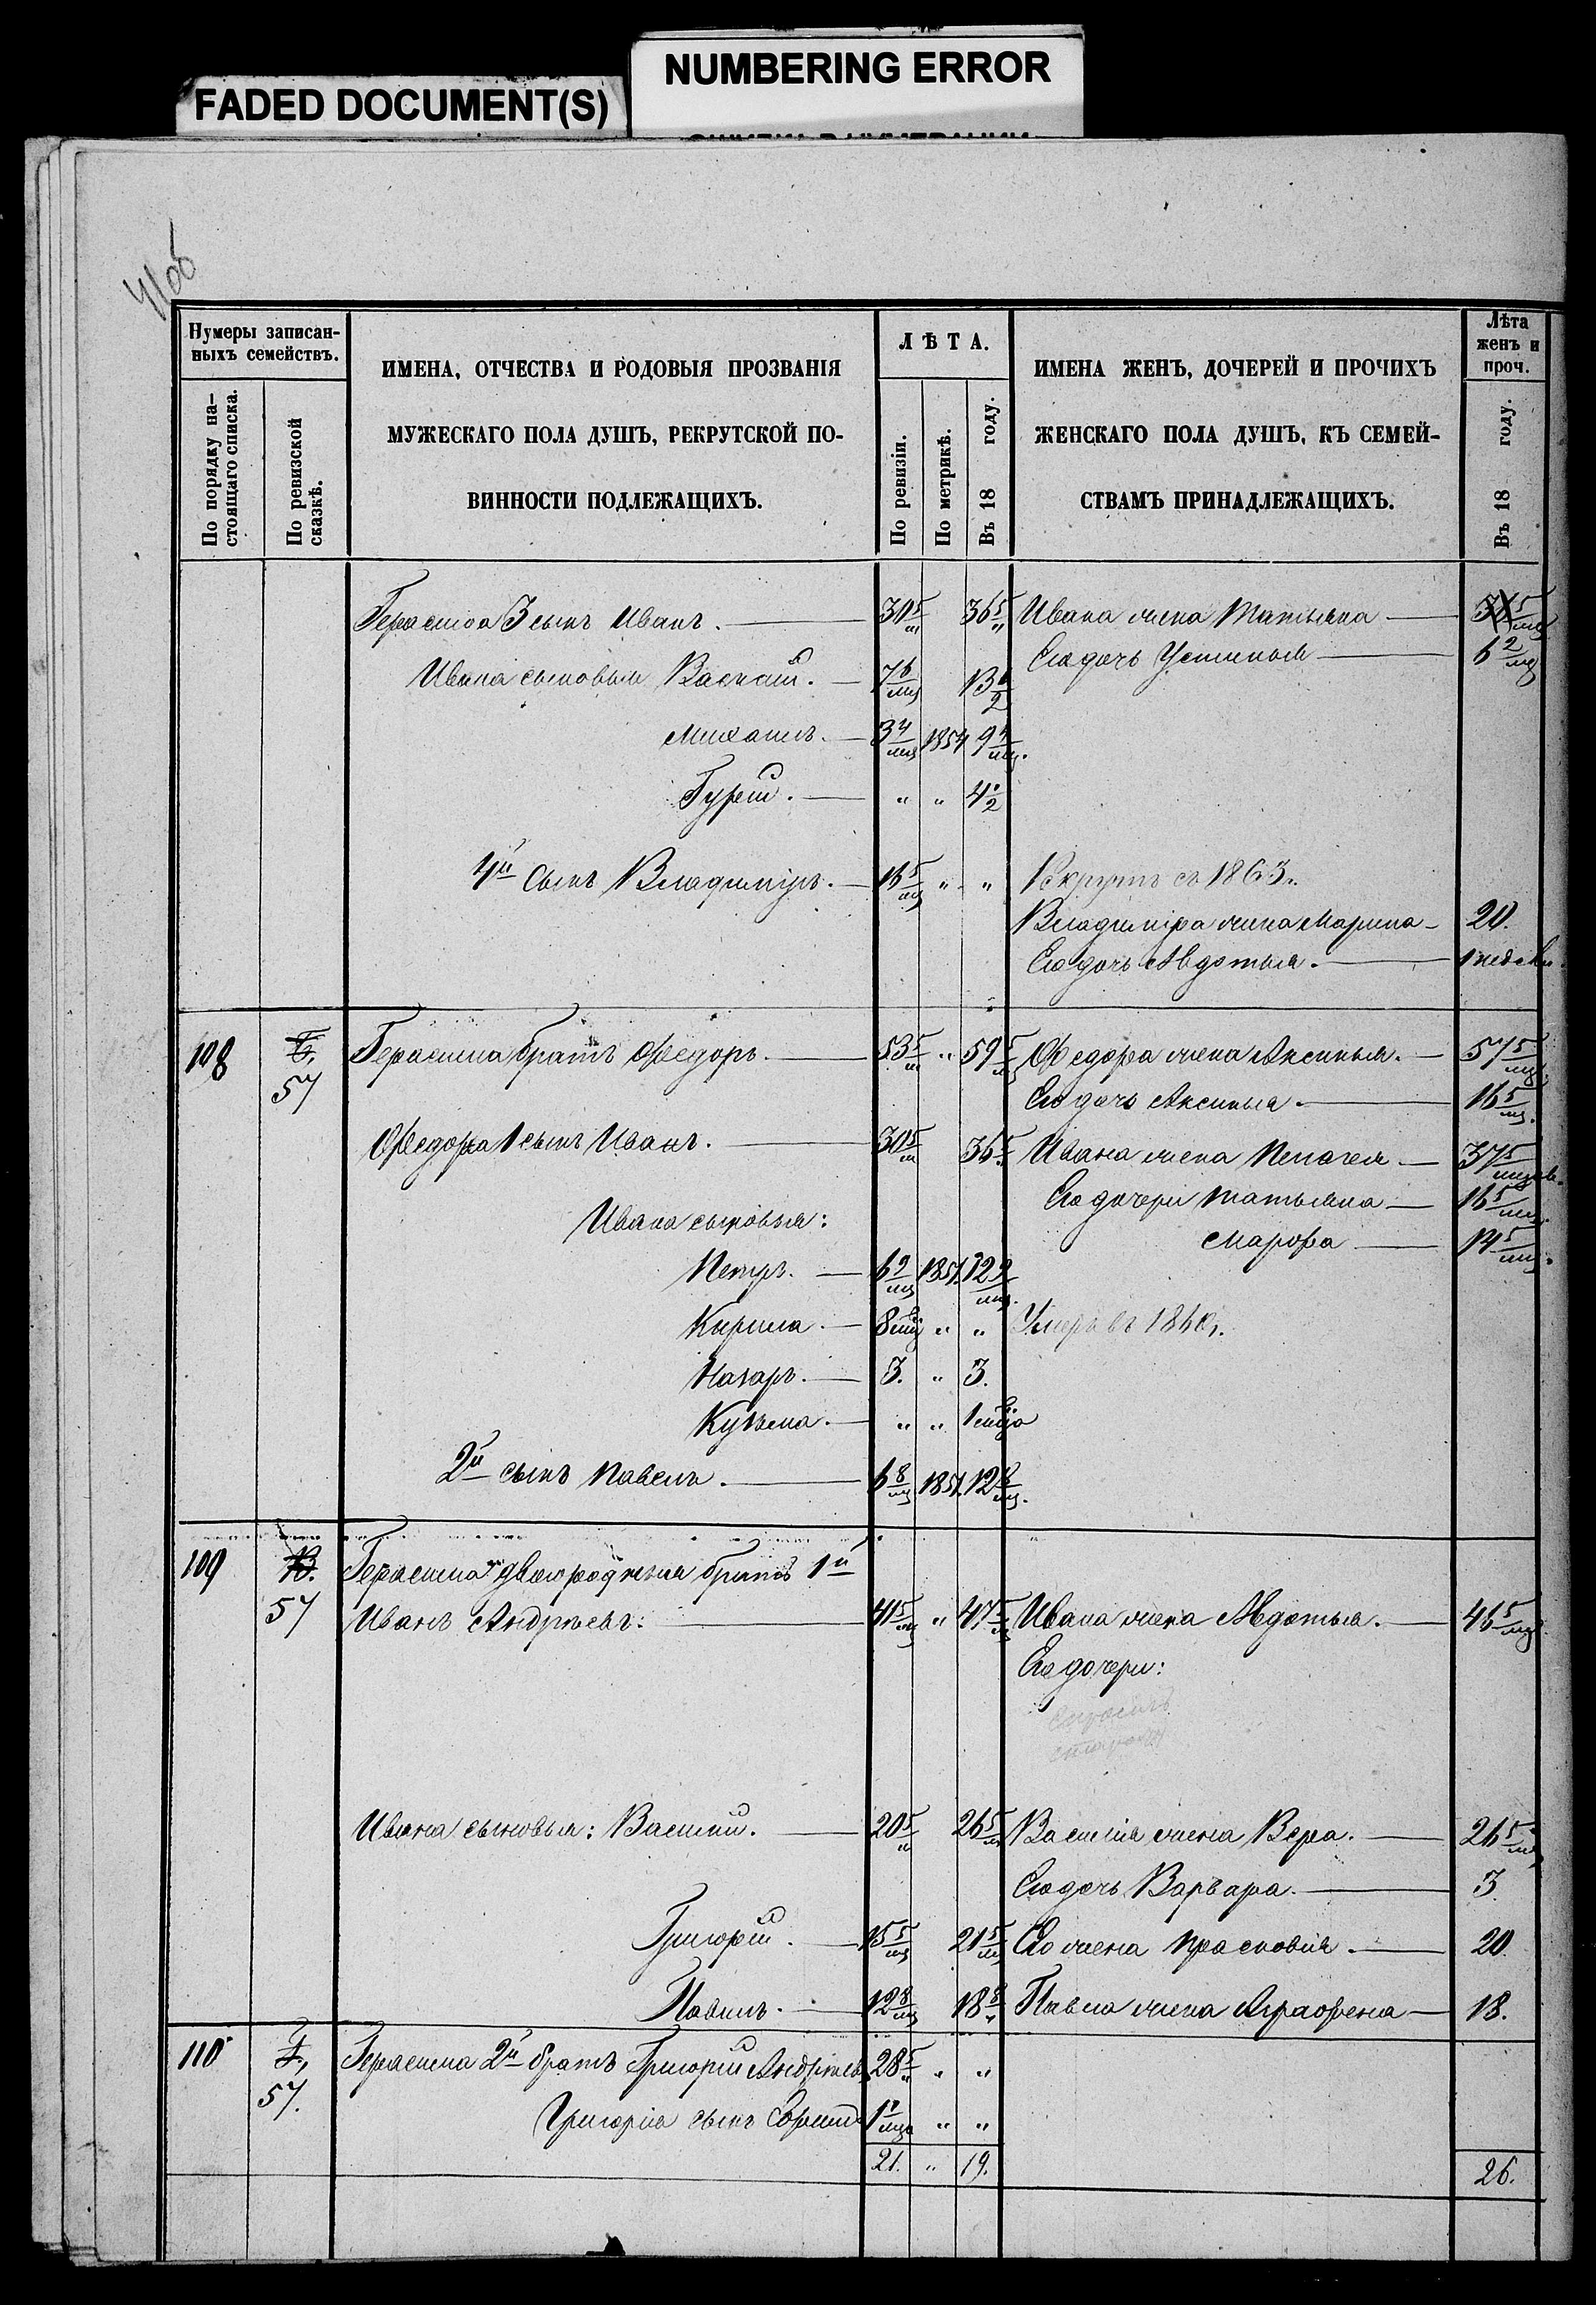 FADED DOCUMENT(S)
NUMBERING ERROR
41об
Нумеры записан-
ныхъ семействъ.
По порядку на-
стоящаго списка.
По ревизской
сказкѣ.
ИМЕНА, ОТЧЕСТВА И РОДОВЫЯ ПРОЗВАНІЯ
МУЖЕСКАГО ПОЛА ДУШЪ, РЕКРУТСКОЙ ПО-
ВИННОСТИ ПОДЛЕЖАЩИХЪ.
ЛѢТА.
По ревизіи.
По метрикѣ.
Въ 18 году.
ИМЕНА ЖЕНЪ, ДОЧЕРЕЙ И ПРОЧИХЪ
ЖЕНСКАГО ПОЛА ДУШЪ, КЪ СЕМЕЙ-
СТВАМЪ ПРИНАДЛЕЖАЩИХЪ.
Лѣта
женъ и
проч.
Въ 18 году.
Герасима 3 сынъ Иванъ. 30 5/м 36 5/" Ивана жена Татьяна
Его дочь Устинья 6 2/мц
Ивана сыновья Василій. 7 6/мц 13 1/2
Михаилъ. 3 4/мц 1854 9 4/мц.
Гурій. " " 4 1/2
4й сынъ Владиміръ. 16 5/мц " " Рекрутъ съ 1863.
Владиміра жена Марина 20.
Его дочь Авдотья.
108 57 Герасима братъ Федоръ. 53 5/м " 59 5/м Федора жена Аксинья. 57 5/мц.
Его дочь Аксинья 16 5/мц.
Федора 1 сынъ Иванъ. 30 5/м 36 5/" Ивана жена Пелагея 37 5/мц
Его дочери Татьяна 16 5/мц.
Ивана сыновья:
Марфа 14 5/мц.
Петръ. 6 9/мц 1851. 12 9/мц.
Кирила. 8 мц " " Умеръ въ 1860.
Назаръ. 3. " 3.
Кузьма. " " 1 мца
2й сынъ Павелъ. 6 8/мц 1851. 12 8/мц.
109 В. 57 Герасима двоюродныя братъ 1й
Иванъ Андреевъ: 41 5/мц " 47 5/мц Ивана жена Авдотья. 46 5/мц
Его дочери:
Ивана сыновья: Василій. 20 5/м 26 5/м Василія жена Вера. 26 5/мц
Его дочь Варвара. 3.
Григорій. 15 5/мц 21 5/мц Его жена Прасковія. 20
Павилъ. 12 8/мц 18 8/" Павла жена Аграфена 18.
110 57. Герасима 2й братъ Григорій Андреевъ 28 5/" " "
Григорія сынъ " "
21. " 19. 26.